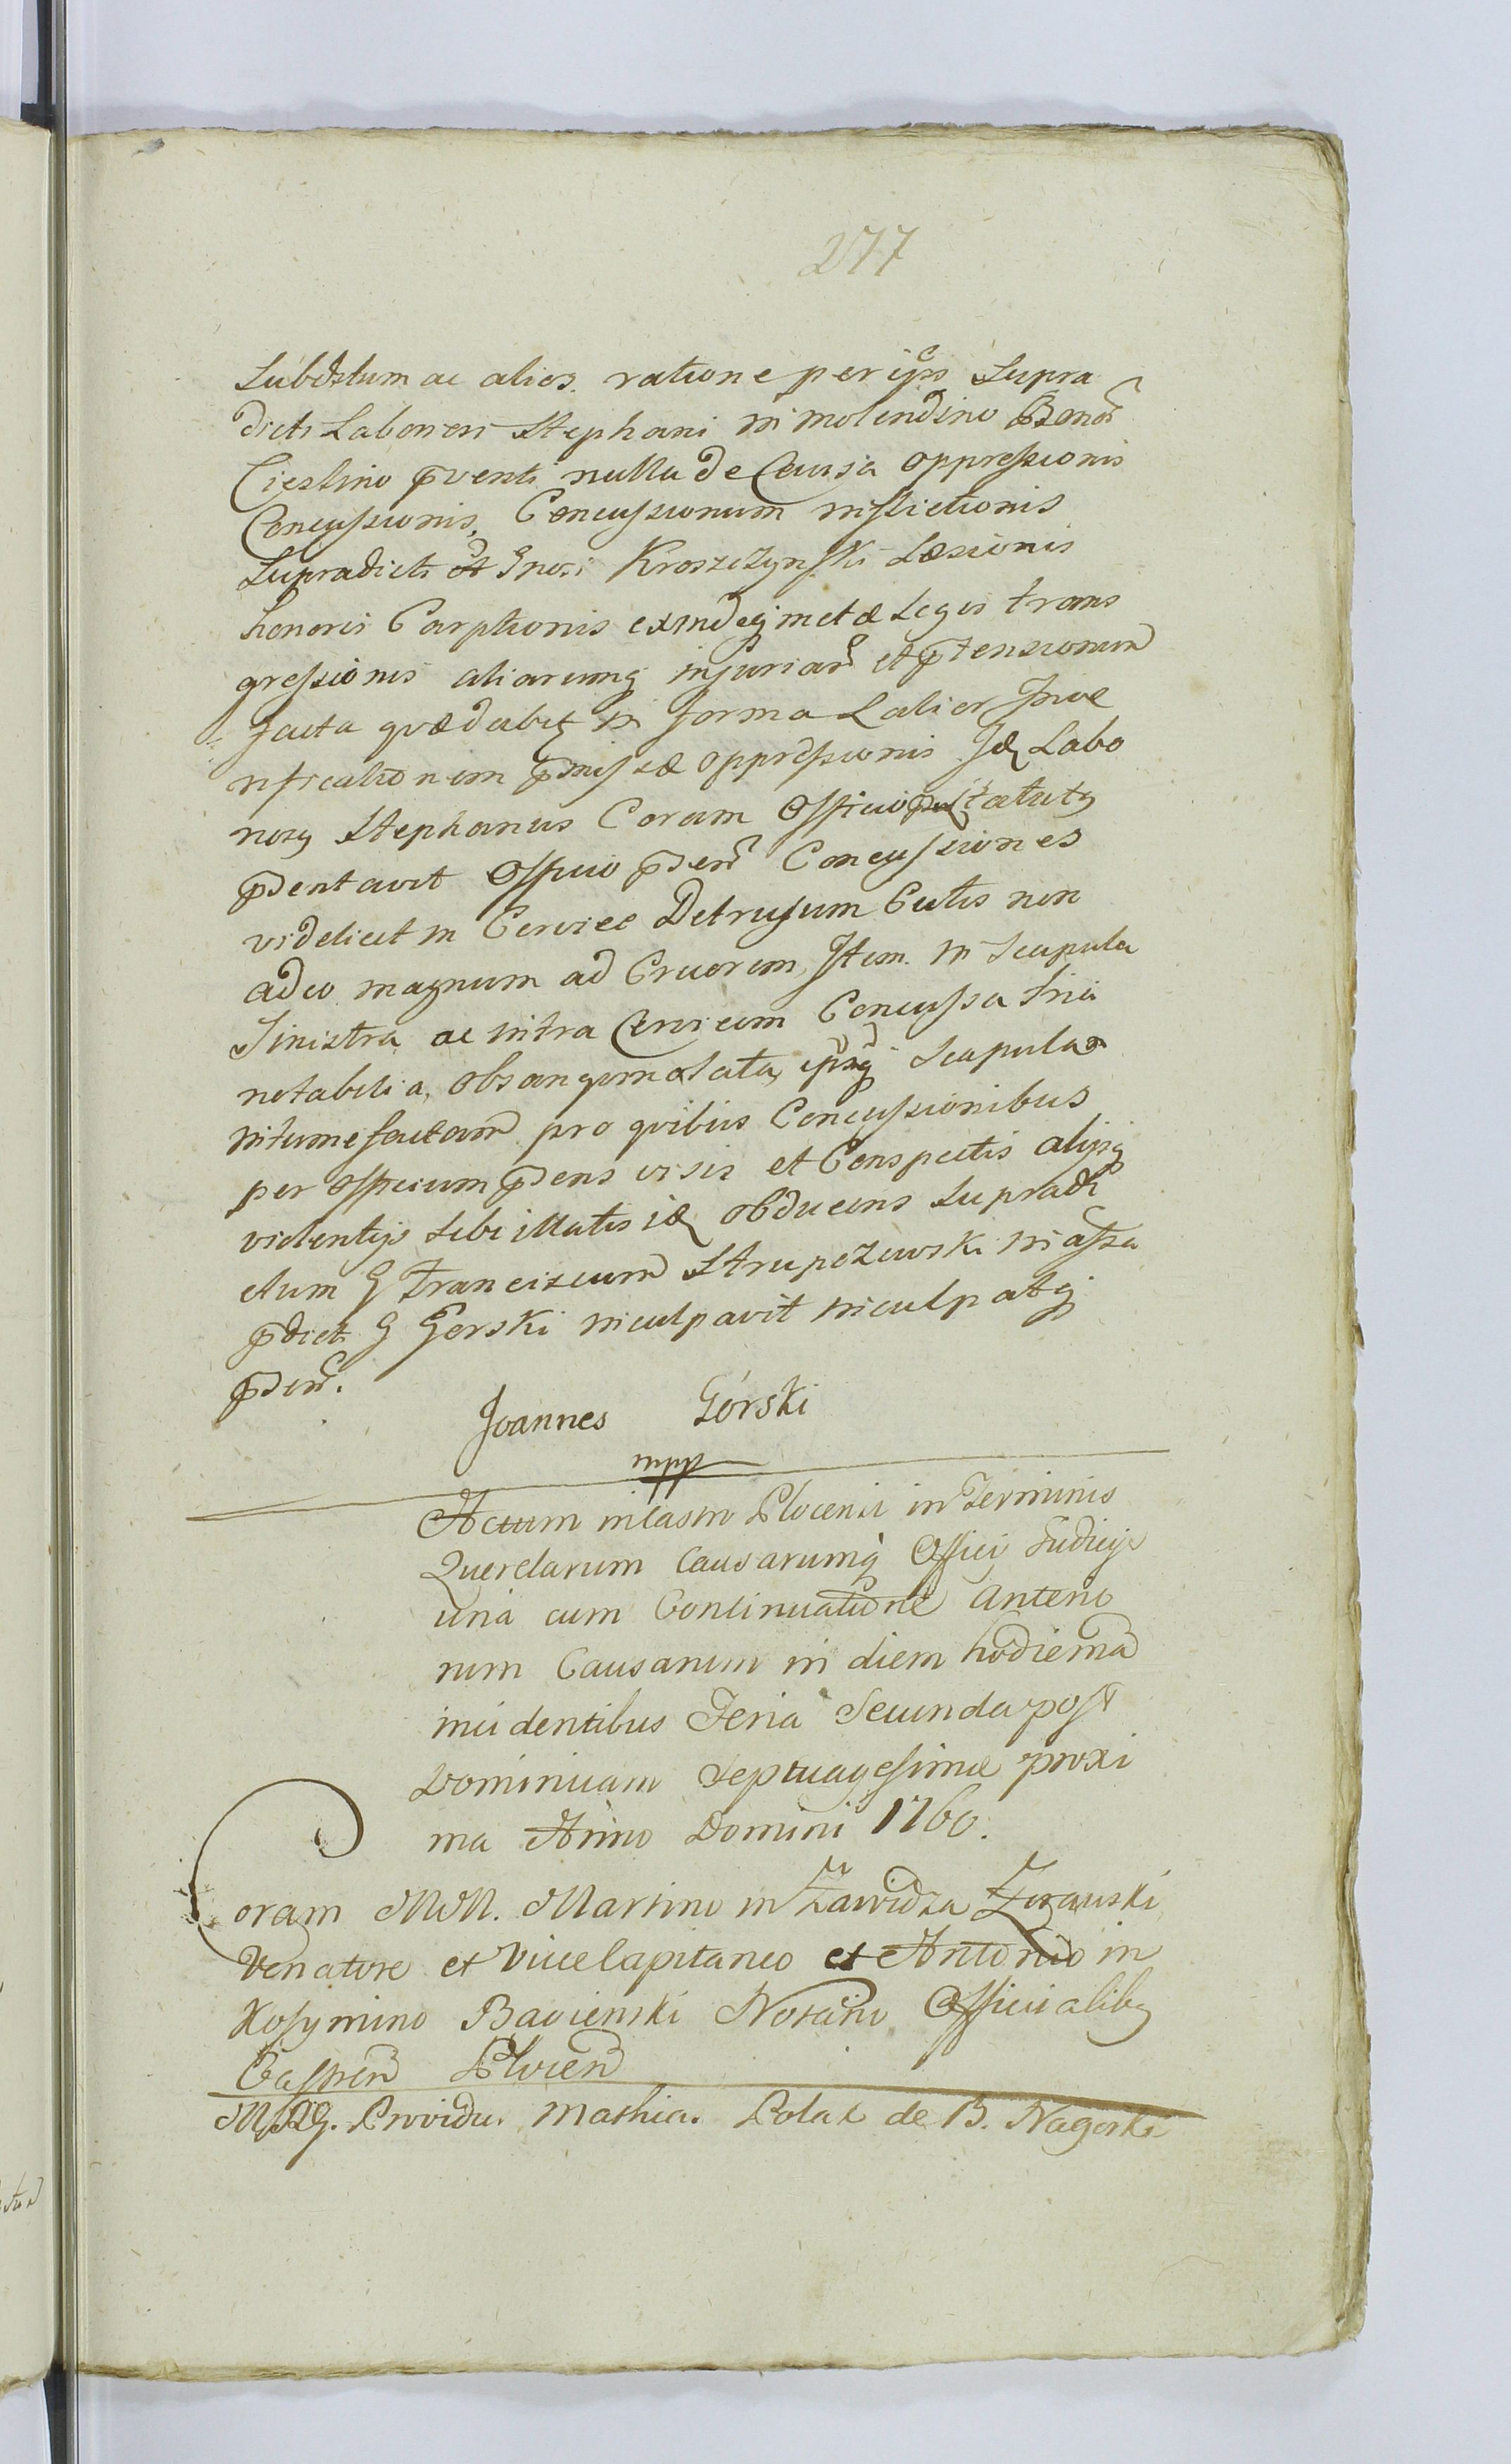 277
Subditum ac alios ratione per ipsos Supra
dicti Laboriosi Stephani in molendino Bonor
Cieslino pventi nulla de Causa oppressionis
Concussionis, Concussionum inflictionis
Supradicti Gnosi Kroszczynski Laesionis
honoris Carptionis exindeq metae Legis trans
gressionis aliarumq injuriar et ptensionum
facta quaedubiq in forma Latior Inve
rificationem pmissae oppressionis Id Labo
riosy Stephanus Coram Officio
pdentavit Officio pden Concussiones
videlicet in Cervice Detrusum Cutis non
adeo magnum ad Cruorem, Item in Scapula
Sinistra ac intra Cervicem Concussa tria
notabilia, obsanguinolata, ipsaq Scapulam
intumefactam pro quibus Concussionibus
per officium pdens visis et Conspectis alijsq
violentijs sibi illatis id obducens supradi
ctum G Franciscum Strupczewski in assa
pdicti G Gorski inculpavit inculpatq
pden.
Joannes Górski
mpp
Actum in Castro Plocensi in Terminis
Querelarum Causarumq Officij Judicijs
una cum Continuatione Anterio
rum Causarum in diem hodiernā
incidentibus Feria Secunda post
Dominicam Septuagesimae proxi
ma Anno Domini 1760.
Coram MM. Martino in Zawidza Zurawski
Venatore et ViceCapitaneo et Antonio in
Kosymino Bacienski Notario Officialiby
Castren Plocen
Providu. Mathia. Polak de B. Nagorki